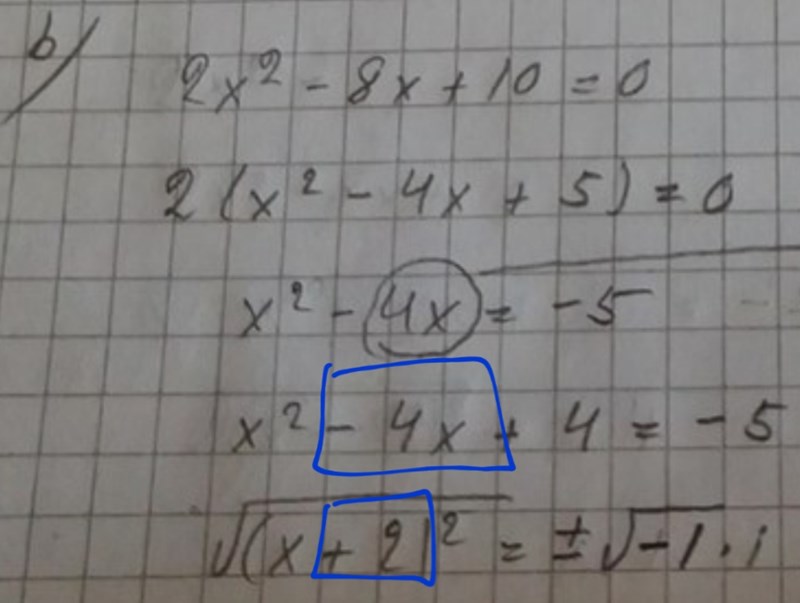 b)
2x² - 8x + 10 = 0
2(x² - 4x + 5) = 0
x² - 4x = -5
x² - 4x + 4 = -5
√(x + 2)² = ± √-1 · i